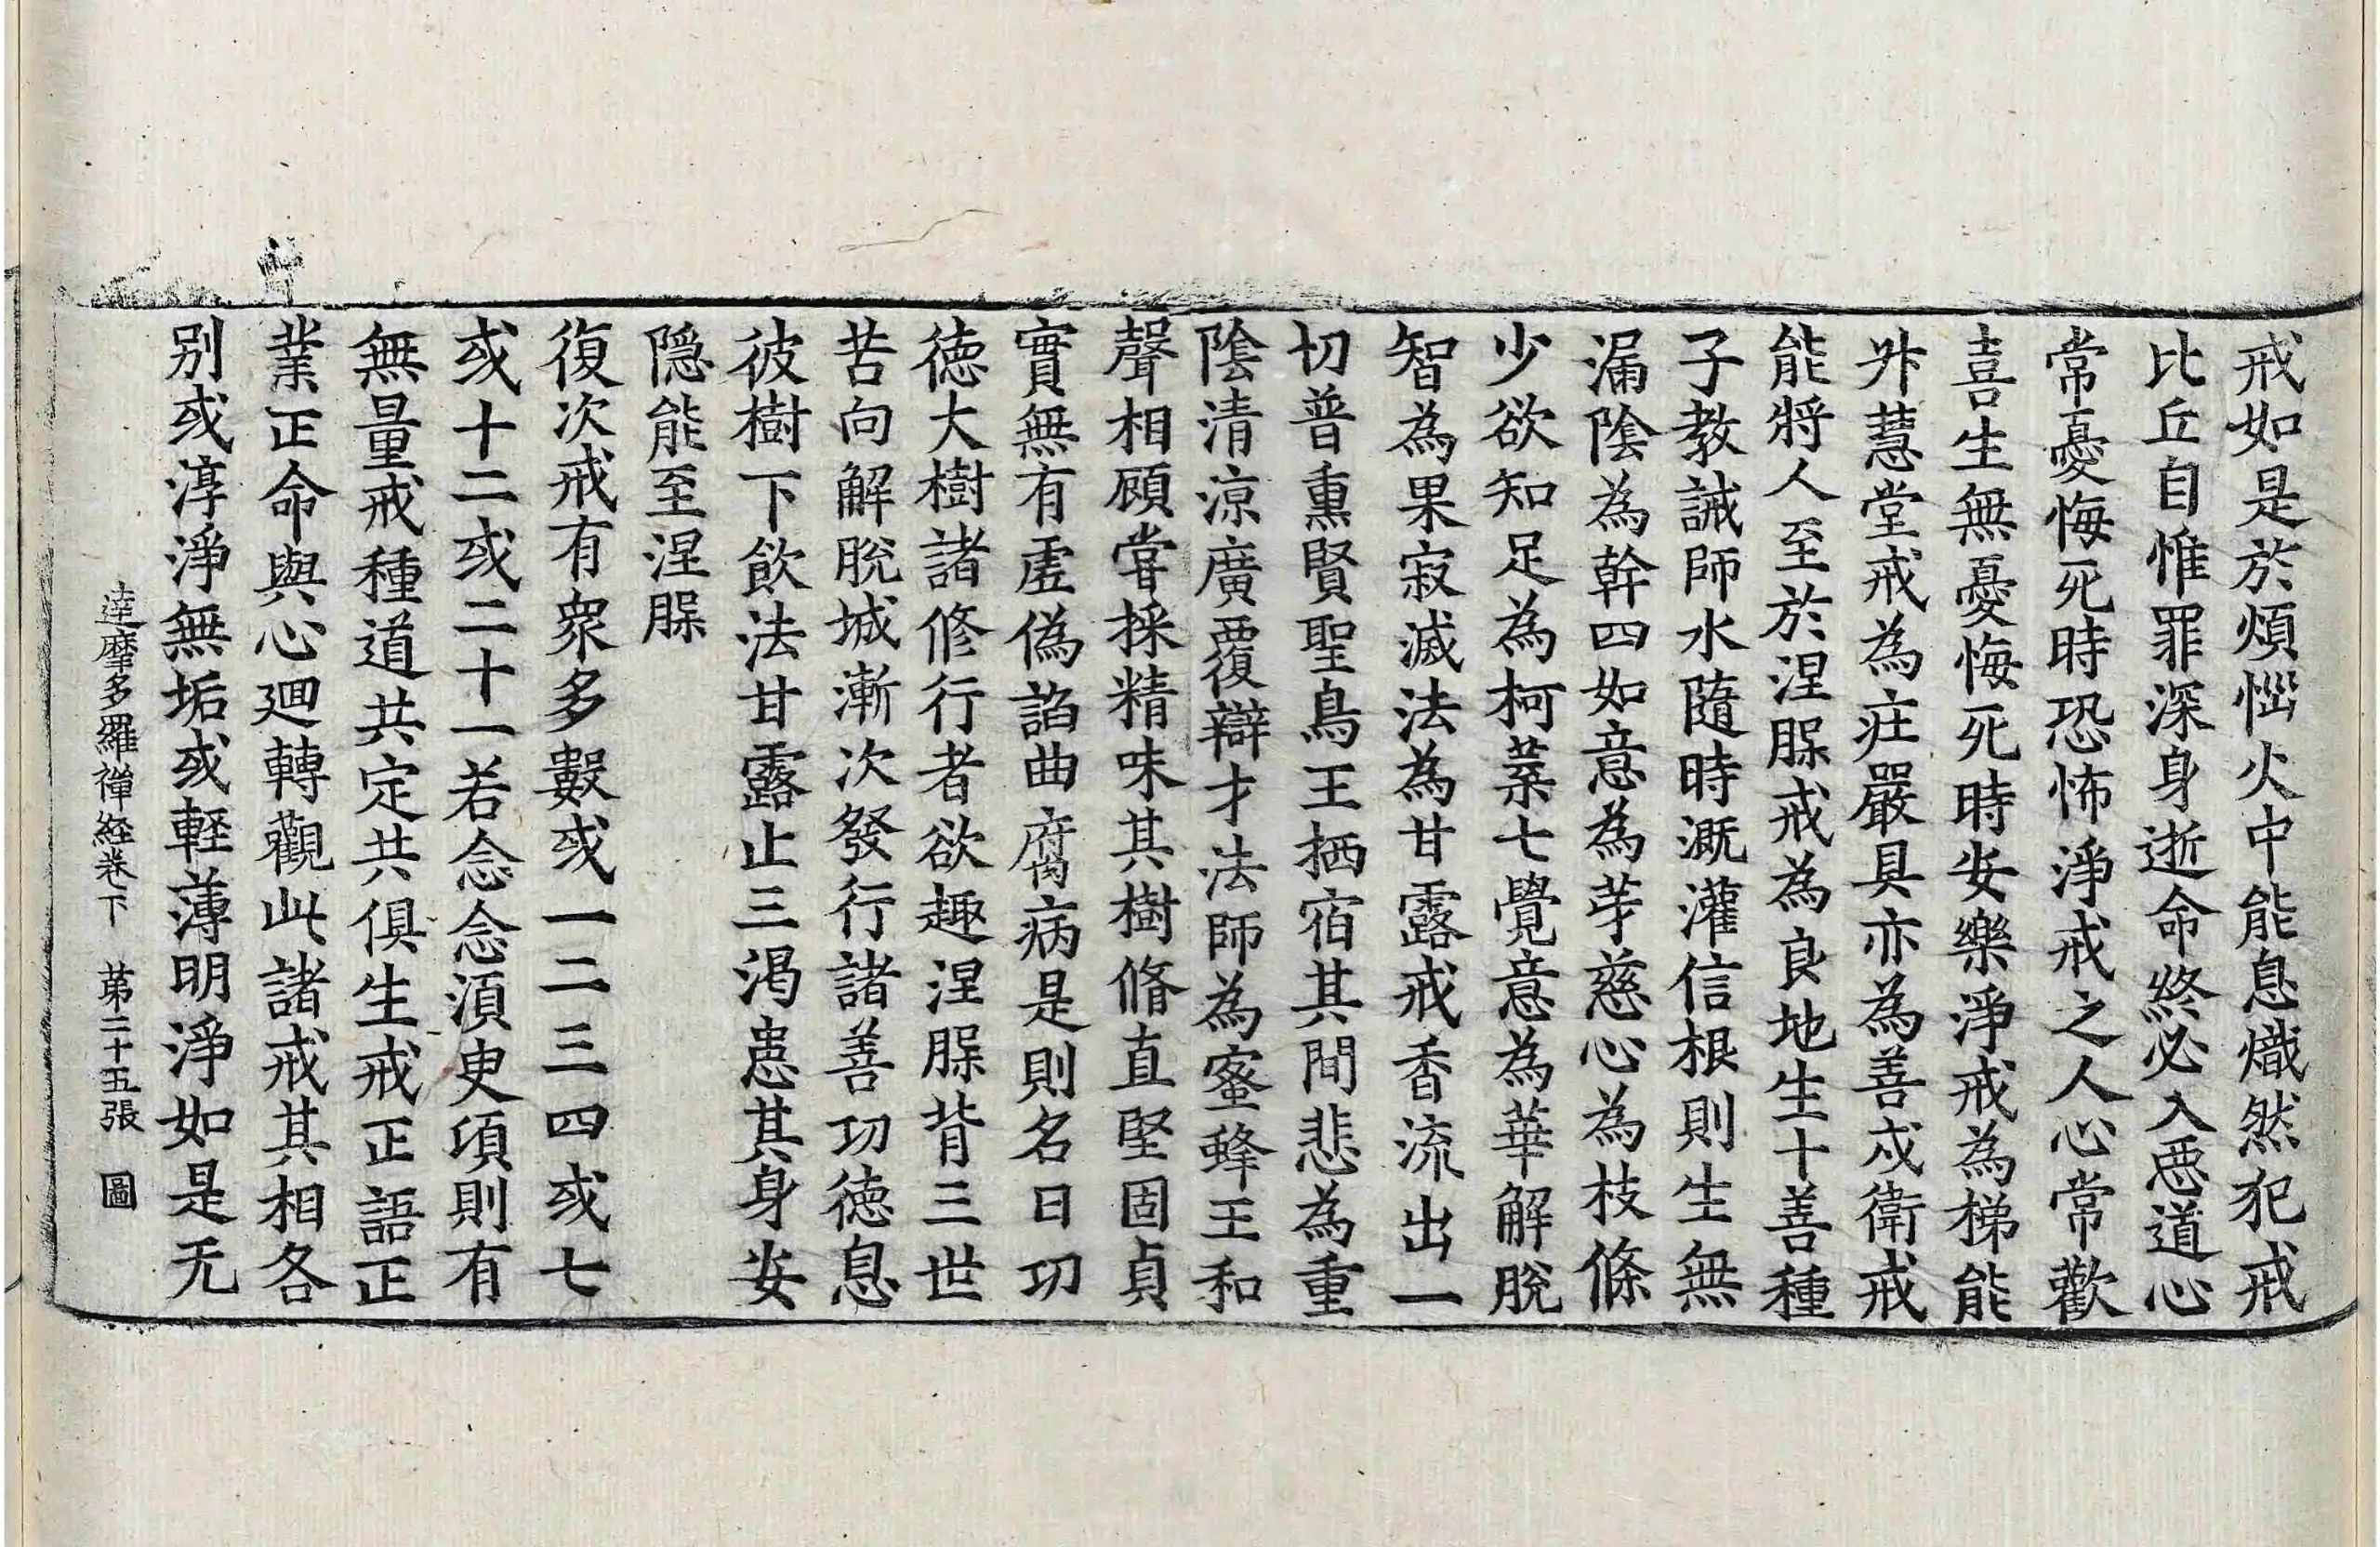 戒如是於煩惱火中能息熾然犯戒
比丘自惟罪深身逝命終必入惡道心
常憂悔死時恐怖淨戒之人心常歡
喜生無憂悔死時安樂淨戒為梯能
昇慧堂戒為庄嚴具亦為善戍衛戒
能將人至於涅槃戒為良地生十善種
子教誡師水隨時溉灌信根則生無
漏陰為幹四如意為芽慈心為枝條
少欲知足為柯葉七覺意為華解脫
智為果寂滅法為甘露戒香流出一
切普熏賢聖鳥王栖宿其間悲為重
陰清涼廣覆辯才法師為蜜蜂王和
聲相顧甞採精味其樹脩直堅固貞
實無有虛偽諂曲腐病是則名曰功
德大樹諸修行者欲趣涅槃背三世
苦向解脫城漸次發行諸善功德息
彼樹下飲法甘露止三渴患其身安
隱能至涅槃
復次戒有衆多數或一二三四或七
或十二或二十一若念念須臾項則有
無量戒種道共定共俱生戒正語正
業正命與心迴轉觀此諸戒其相各
別或淳淨無垢或輕薄明淨如是无
達摩多羅禪經卷下　第二十五張　圖